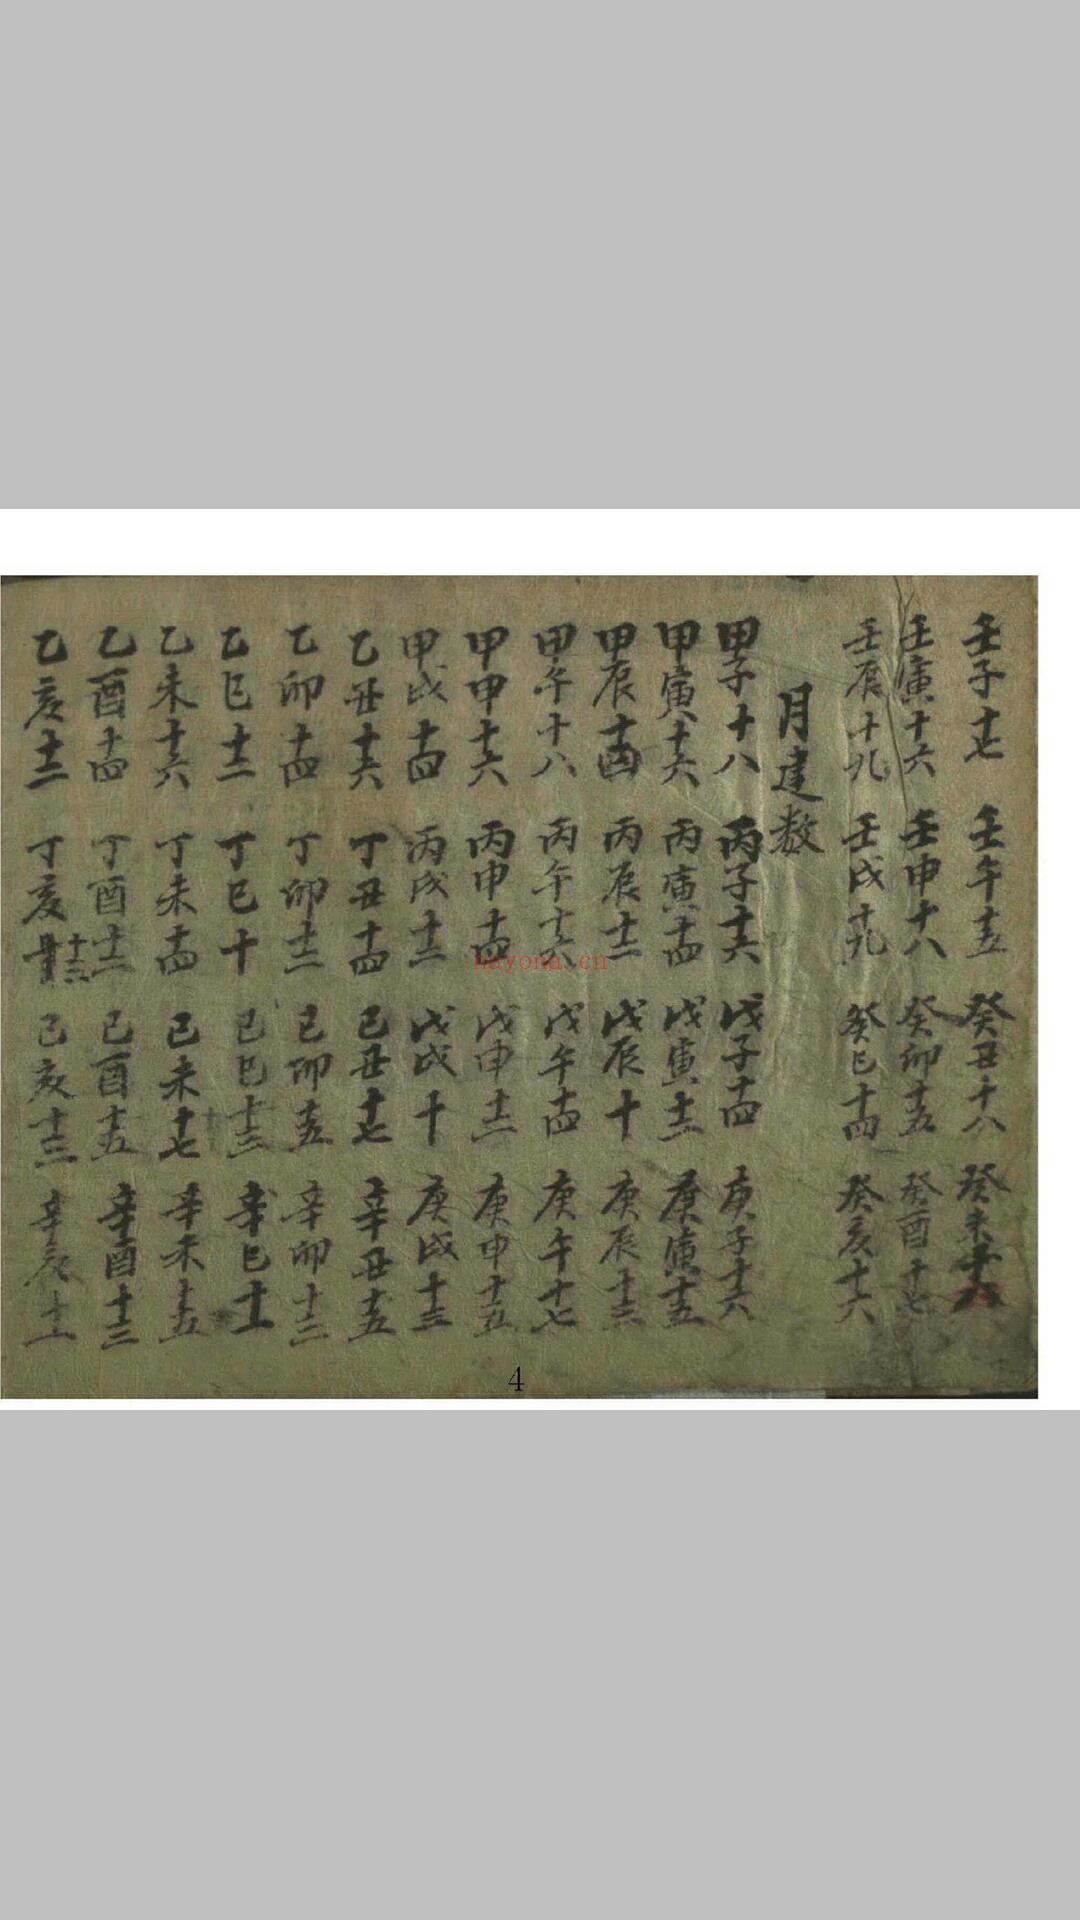 壬子十七 壬午十五 癸丑十八 癸未
壬寅十六 壬申十八 癸卯十五 癸酉十七
壬辰十九 壬戌十九 癸巳十四 癸亥十六
月建数
甲子十八 丙子十六 戊子十四 庚子十六
甲寅十六 丙寅十四 戊寅十二 庚寅十五
甲辰十四 丙辰十二 戊辰十 庚辰十三
甲午十八 丙午十六 戊午十四 庚午十七
甲申十六 丙申十四 戊申十二 庚申十五
甲戌十四 丙戌十二 戊戌十 庚戌十三
乙丑十六 丁丑十四 己丑十七 辛丑十五
乙卯十四 丁卯十二 己卯十五 辛卯十三
乙巳十二 丁巳十 己巳十三 辛巳十一
乙未十六 丁未十四 己未十七 辛未十五
乙酉十四 丁酉十二 己酉十五 辛酉十三
乙亥十二 丁亥 己亥十三 辛亥十一
hayona.cn
4